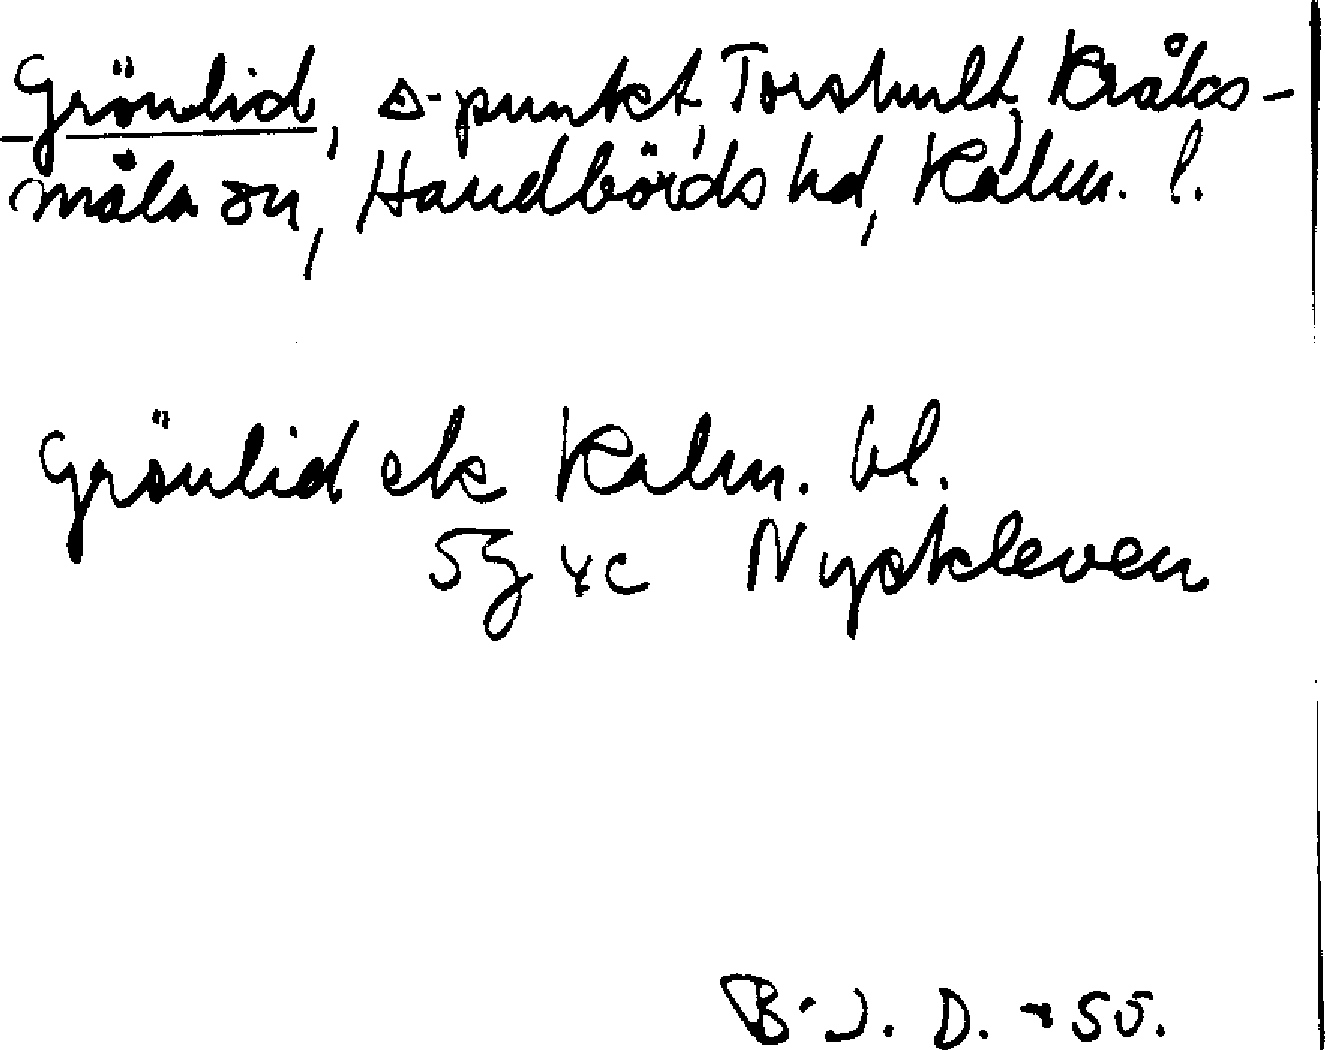 Grönlid, △-punkt, Torshult, Kråks-
måla sn, Handbörds hd, Kalm. l.
Grönlid ek Kalm. bl.
5g 4c Nyskleven
B.J. D. -50.